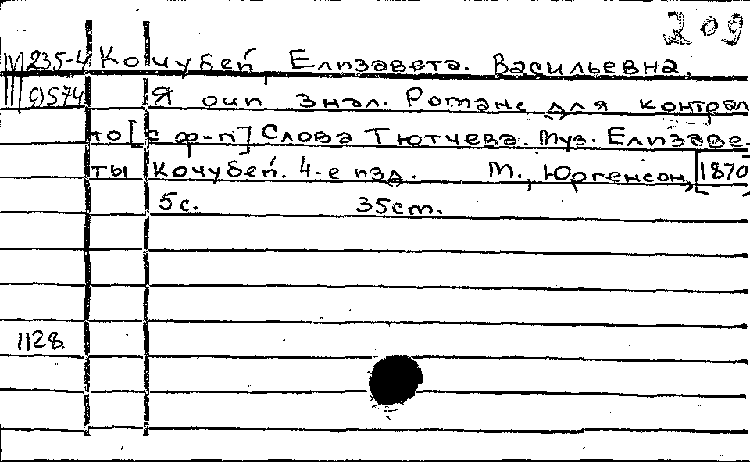 209
М 235-4 Кочубей, Елизавета Васильевна.
9574 Я очи знал. Романс для контрал
то [с ф-п] Слова Тютчева. Муз. Елизаве-
ты Кочубей. 4-е изд. М., Юргенсон, [1870]
5 с. 35 см.
1128